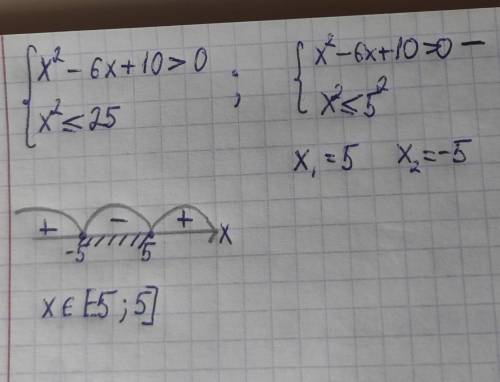 { x² - 6x + 10 > 0
x² ≤ 25 ;
{ x² - 6x + 10 > 0 —
x² ≤ 5²
x₁ = 5 x₂ = -5
+ - + x
-5 5
x ∈ [-5 ; 5]